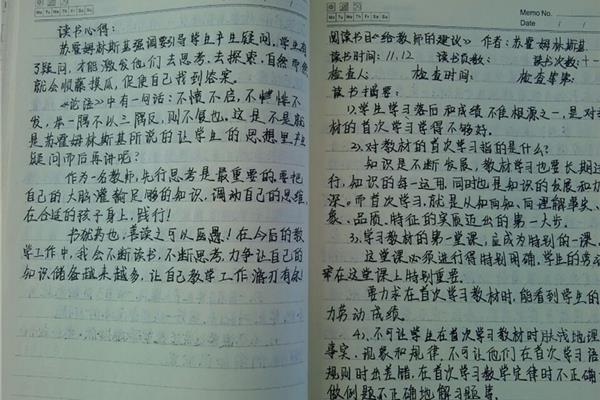 Mo Tu We Th Fr Sa Su
读书心得:
苏霍姆林斯基强调要引导学生产生疑问,学生有
了疑问,才能激发他们去思考、去探索,自然而然
就会顺藤摸瓜,促使自己找到答案。
《论语》中有一句话:不愤不启,不悱不
发,举一隅不以三隅反,则不复也。这是不是就
是苏霍姆林斯基所说的让学生的思想里产生
疑问而后再讲呢?
作为一名教师,先行思考是最重要的,要把
自己的大脑灌输足够的知识,调动自己的思维,
在合适的孩子身上,践行!
书犹药也,善读之可以医愚!在今后的教
学工作中,我会不断读书,不断思考,力争让自己的
知识储备越来越多,让自己教学工作游刃有余!
Mo Tu We Th Fr Sa Su
Memo No.
Date / /
阅读书目《给教师的建议》 作者:苏霍姆林斯基
读书时间:11.12 读书页数: 读书次数:十一
检查人: 检查时间: 检查等第:
读书摘要:
1)、学生学习落后和成绩不佳根源之一,是对教
材的首次学习学得不够好。
2)、对教材的首次学习指的是什么?
知识是不断发展,教材学习也要长期进
行,知识的每一次运用,同时也是知识的发展和加
深。而首次学习,就是从知到知、向理解事实、现
象、品质、特征的实质迈出的第一大步。
3)、学习教材的第一堂课,应成为特别的一课。
这堂课必须进行得特别明确,学生的劳动
率在这堂课上特别重要。
要力求在首次学习教材时,能看到学生的脑
力劳动成绩。
4)、不可让学生在首次学习教材时肤浅地理解
事实、现象和规律,不可让他们在首次学习语法
规则时出差错,在首次学习数学定律时不正确
做例题不正确地解习题等。